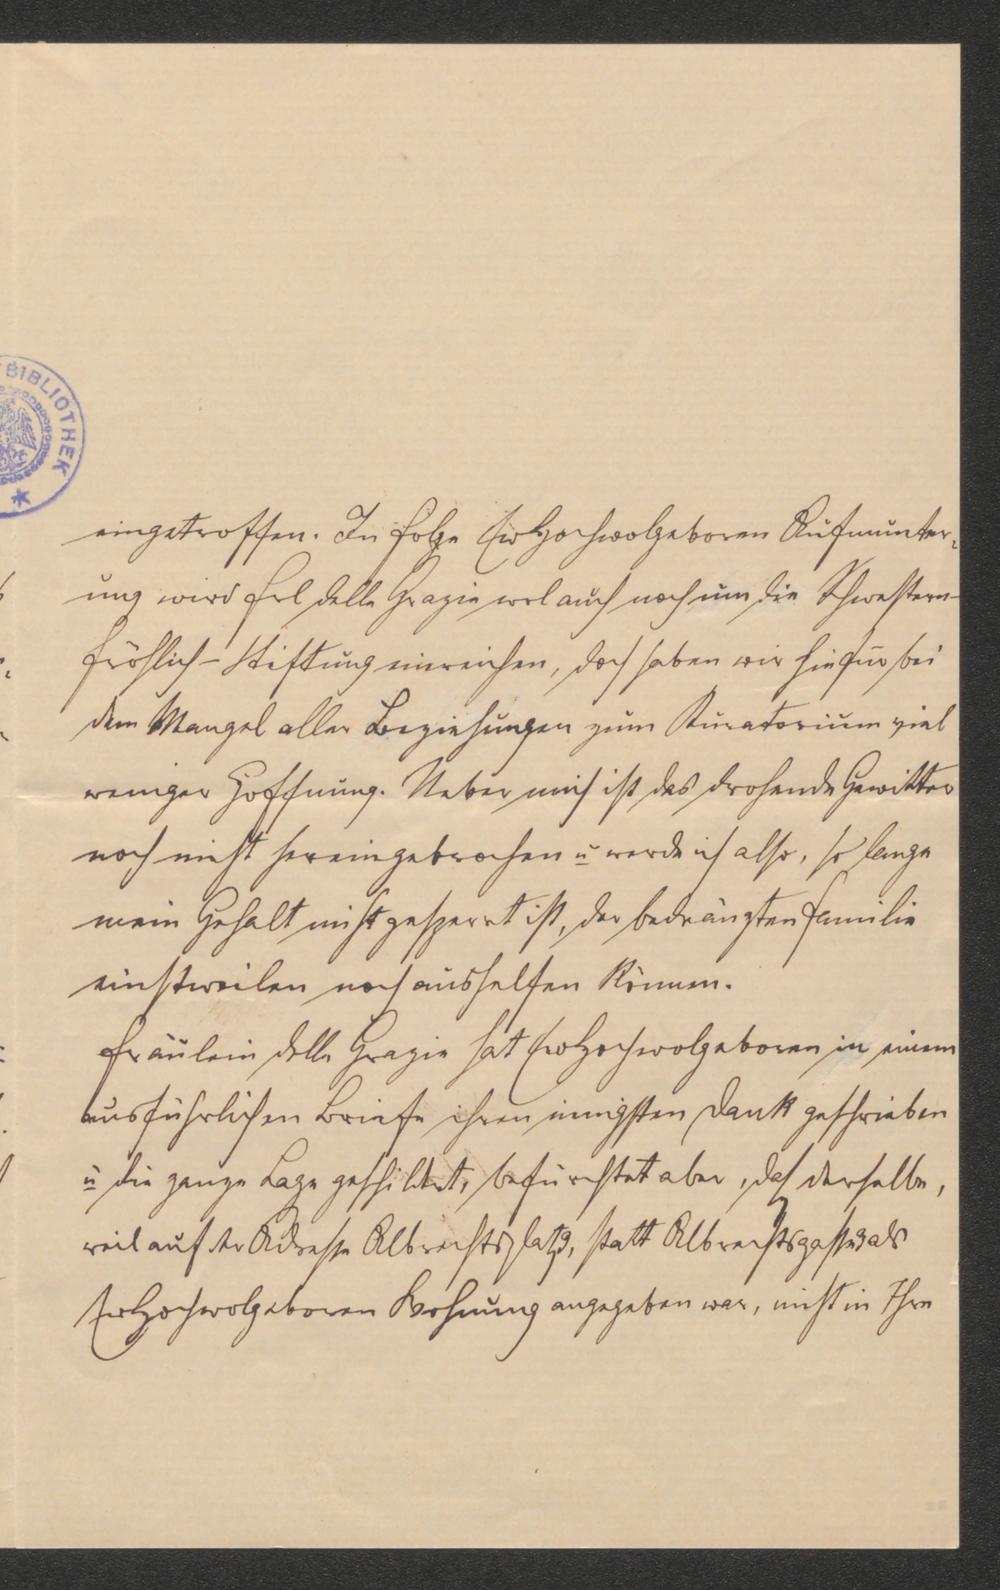 BIBLIOTHEK
eingetroffen. In Folge Ew Hochwolgeboren Aufmunter-
ung wird Frl delle Grazie wol auch noch um die Schwestern-
Fröhlich-Stiftung einreichen, doch haben wir hiefür bei
dem Mangel aller Beziehungen zum Kuratorium viel
weniger Hoffnung. Ueber mich ist das drohende Gewitter
noch nicht hereingebrochen u werde ich also, so lange
mein Gehalt nicht gesperrt ist, der bedrängten Familie
einstweilen noch aushelfen können.
Fräulein delle Grazie hat Ew Hochwolgeboren in einem
ausführlichen Briefe ihren innigsten Dank geschrieben
u die ganze Lage geschildert, befürchtet aber, daß derselbe,
weil auf der Adresse Albrechtsplatz, statt Albrechtsgasse 3 als
Ew Hochwolgeboren Wohnung angegeben war, nicht in Ihre